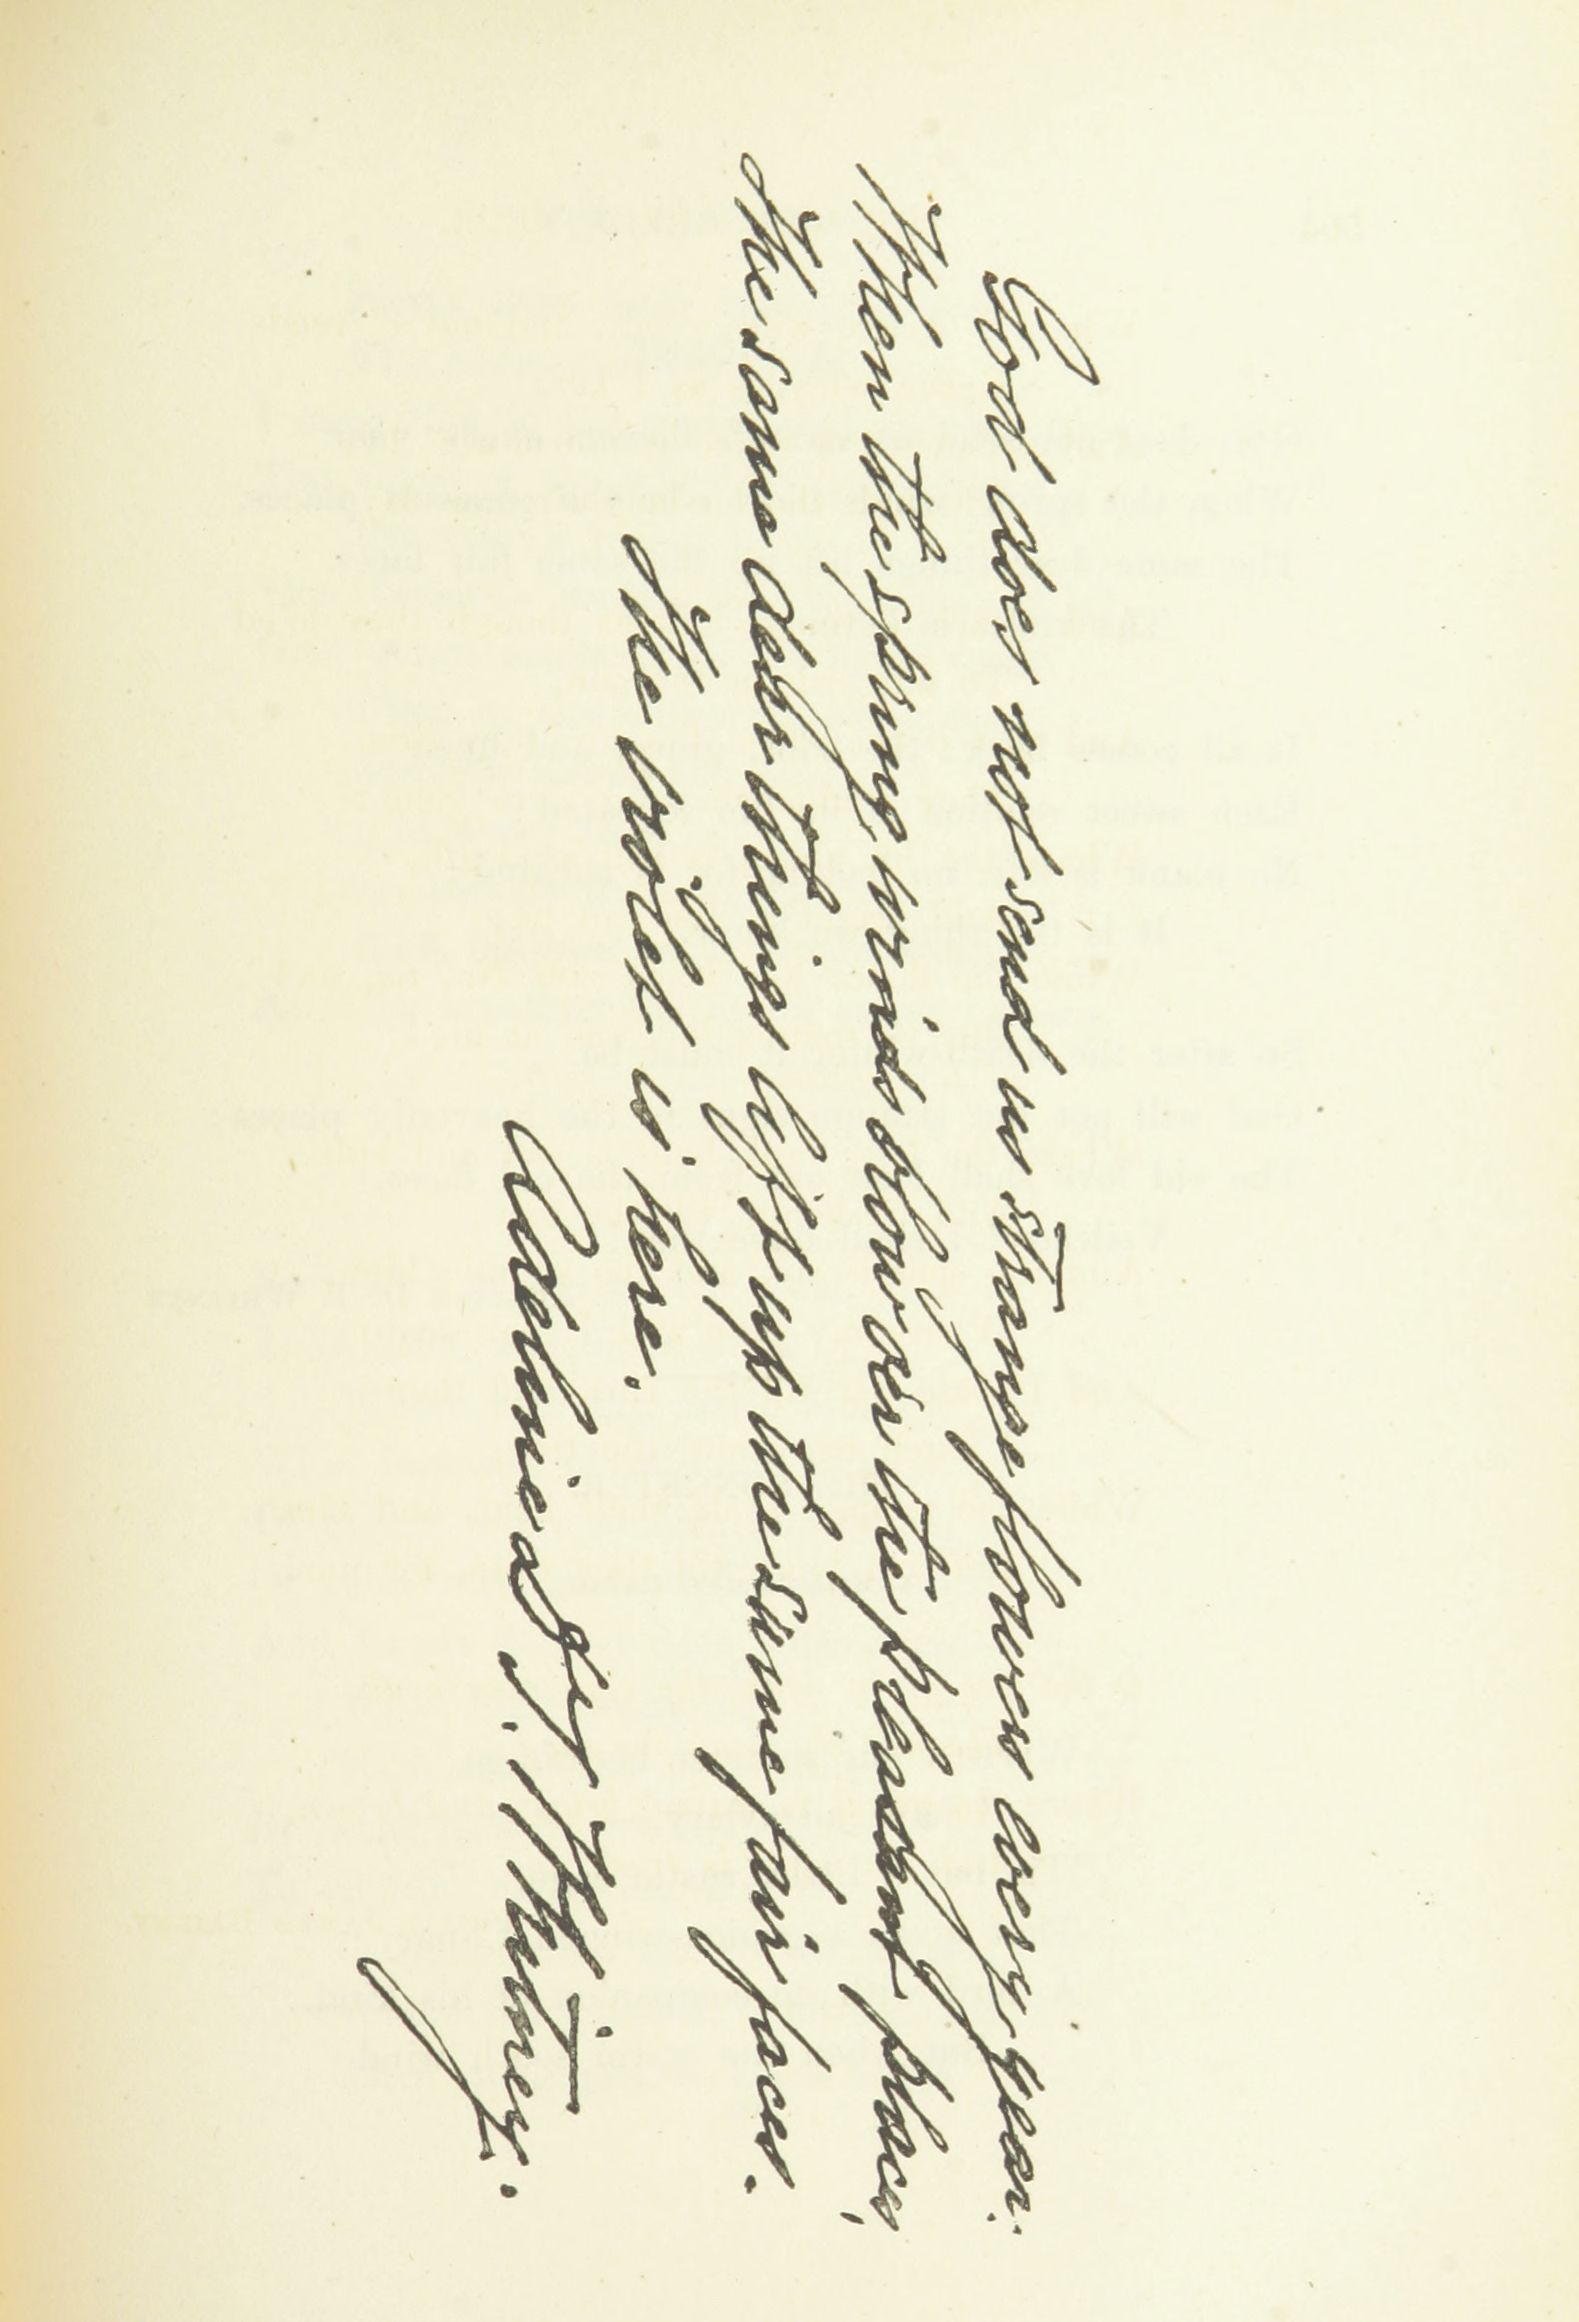 God does not send us strange flowers every year:
When the spring winds blow o'er the pleasant places,
The same dear things lift up the same fair faces.
The violet is here.
Adeline D. T. Whitney.